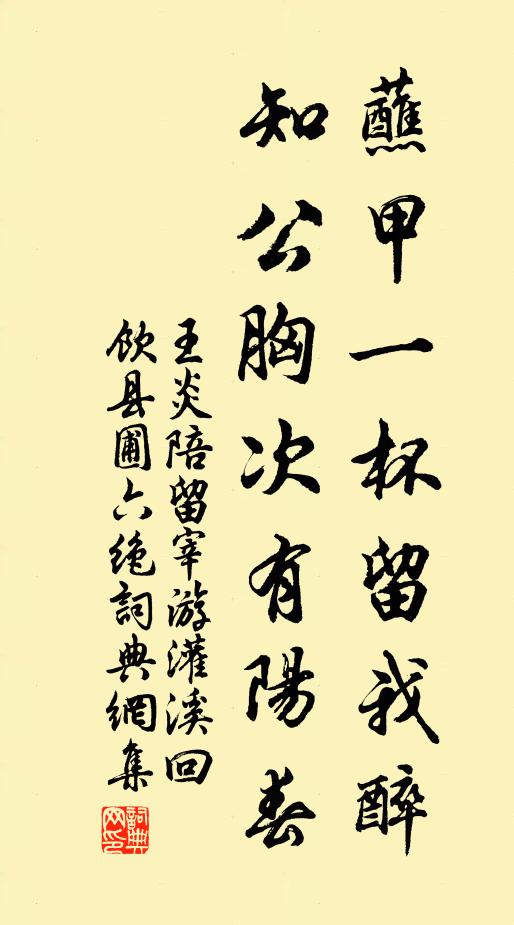 蘸甲一杯留我醉
知公胸次有陽春
王炎陪留宰游灌溪回
飲县圃六绝詞典網集
詞典网印